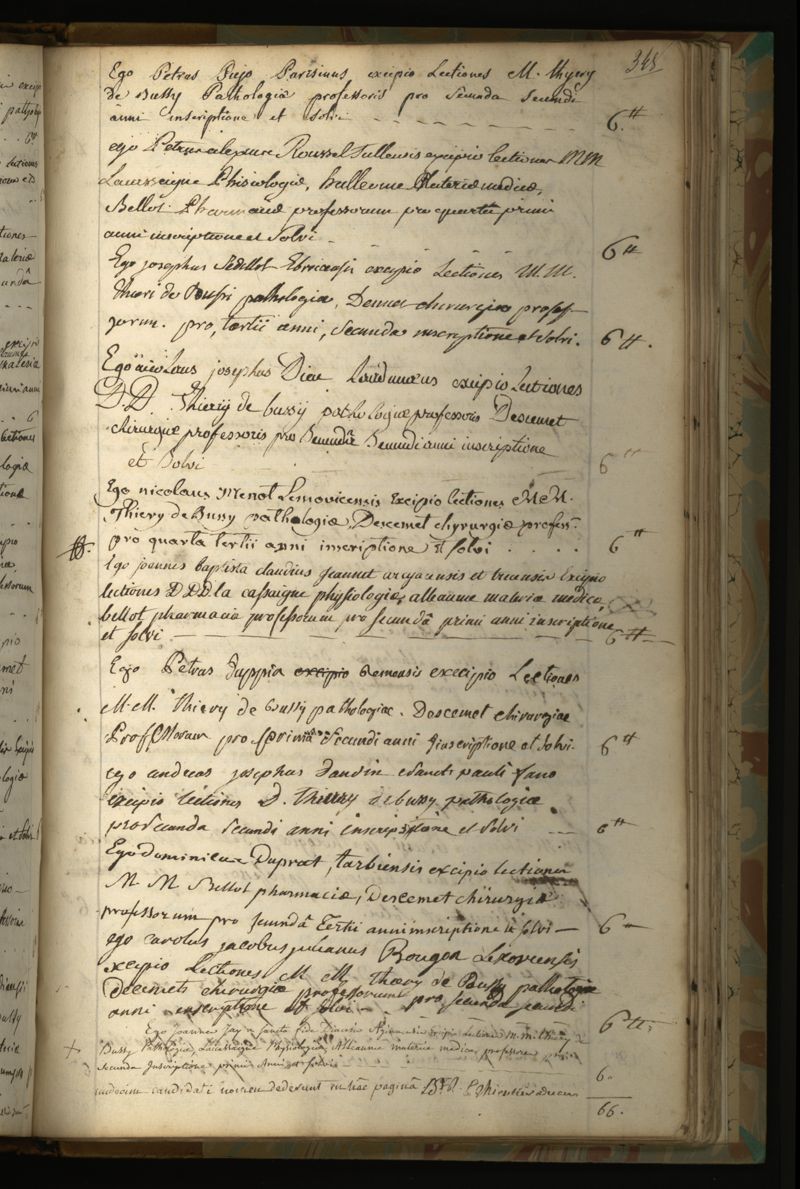 348
Ego Petrus Diejo Parisinus excipio Lectiones M. thyery
de Bussy Pathologiæ professoris pro secunda secundi
anni inscriptione et solvi 6.tt
ego Petrus alexius Roussel Tullensis excipio lectiones MM
Lassaigne Phisiologiæ, halleaume Materiæ medicæ,
Bellot Pharmaciæ professorum pro quarta primi
anni inscriptione et Solvi 6tt
Ego josephus Sedillot Ebroicensis excipio Lectiones M.M.
thieri de Bussi pathologiæ, Demet chirurgiæ profess-
sorum. pro, tertii anni, secunda inscriptione et solvi. 6tt.
Ego nicolaus josephus Dieu excipio Lectiones
D.D. Thieriÿ de bussy pathologiæ professoris Descemet
chirurgiæ professoris pro Secundâ Secundi anni inscriptione
et Solvi 6tt
Ego nicolaus Menot Lemovicensis Excipio lectiones M.M.
Thiery de Bussy pathologiæ, Descemet chyrurgiæ profess.
pro quarta tertii anni inscriptione et solvi . . . . 6tt
Ego joannes baptista claudius jeannet arcyaensis et trecensis Excipio
lectiones D.D.D. la cassaigne physiologiæ, alleaume materiæ medicæ,
bellot pharmaciæ professorum pro secundâ primi anni inscriptione
et solvi 6tt
Ego Petrus Juppin excipio Remensis excipio Lectiones
M.M. Thiery de Bussy pathologiae. Descemet chirurgiae
Professorum pro primâ Secundi anni inscriptione et Solvi. 6tt
ego andreas josephus Daudin e Sancti pauli fano
excipio lectiones D. Thierry de bussy pathologiæ
pro Secunda Secundi anni inscriptione et Solvi 6tt
Ego dominicus Duprat, tarbiensis excipio lectiones
M M Bellot pharmaciæ, Descemet chirurgiæ
professorum pro secundâ Tertii anni inscriptione et solvi — 6
ego carolus jacobus julianus Rouger Lexoviensis
excipio Lectiones M M Thiery de Bussy pathologiæ
Decemets chirurgiæ professorum pro secunda secundi
anni inscriptione et solvi 6tt
Ego joannes Jay a Sancta fide excipio lectiones M.M. thiery de
Bussy Pathologiæ, Lacassaigne Physiologiæ, Alleaume materiæ medicæ, professorum pro
Secunda Inscriptione primi Anni et solvi 6.
medicinæ candidati nomen dederunt in hac paginâ
66.